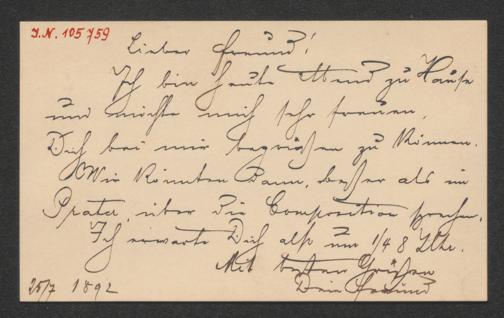 I.N. 105759
Lieber Freund!
Ich bin heute Abend zu Hause
und möchte mich sehr freuen,
Dich bei mir begrüßen zu können.
Wir könnten dann, besser als im
Prater, über die Composition sprechen.
Ich erwarte Dich also um 1/4 8 Uhr.
Mit besten Grüßen
Dein Freund
25/7 1892